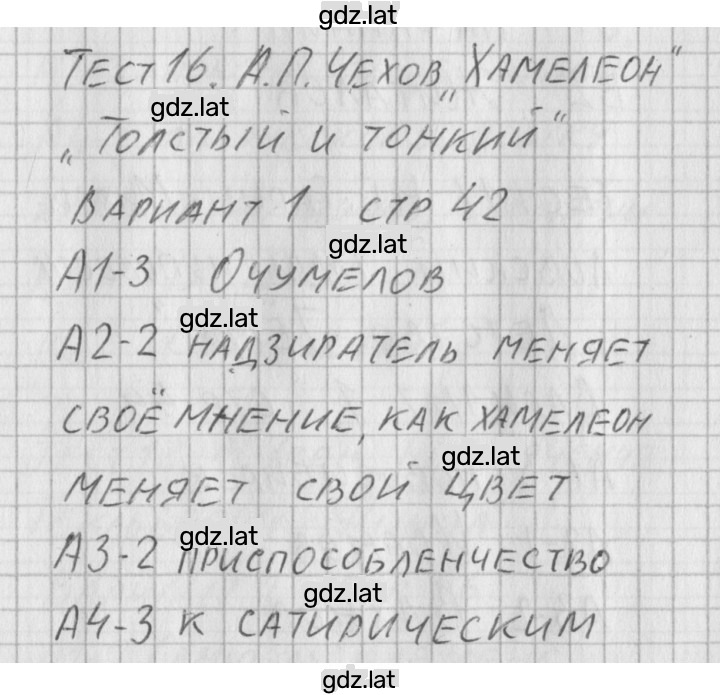 gdz.lat
Тест 16. А.П. Чехов „Хамелеон"
gdz.lat
„Толстый и тонкий"
Вариант 1 стр 42
gdz.lat
А1-3 Очумелов
gdz.lat
А2-2 надзиратель меняет
своё мнение, как хамелеон
gdz.lat
меняет свой цвет
gdz.lat
А3-2 приспособленчество
gdz.lat
А4-3 к сатирическим
gdz.lat